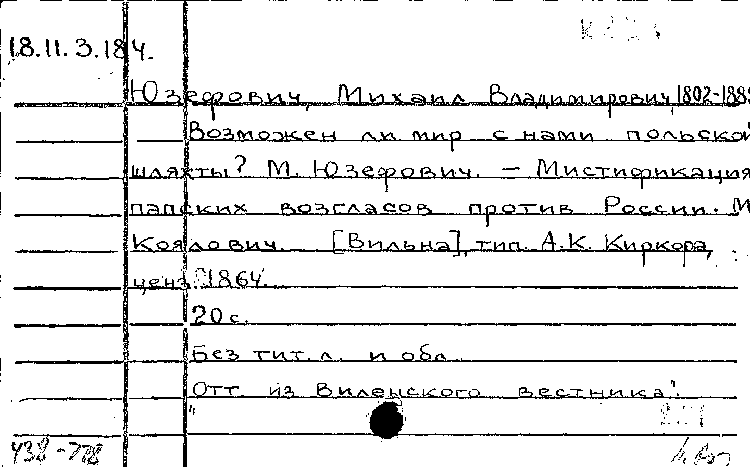 18.11.3.184.
Юзефович, Михаил Владимирович, 1802-1889
Возможен ли мир с нами польской
шляхты? М. Юзефович. — Мистификация
папских возгласов против России. М.
Коялович. [Вильна], тип. А.К. Киркора,
ценз. 1864.
20 с.
Без тит. л. и обл.
Отт. из Виленского вестника".
"
438-778